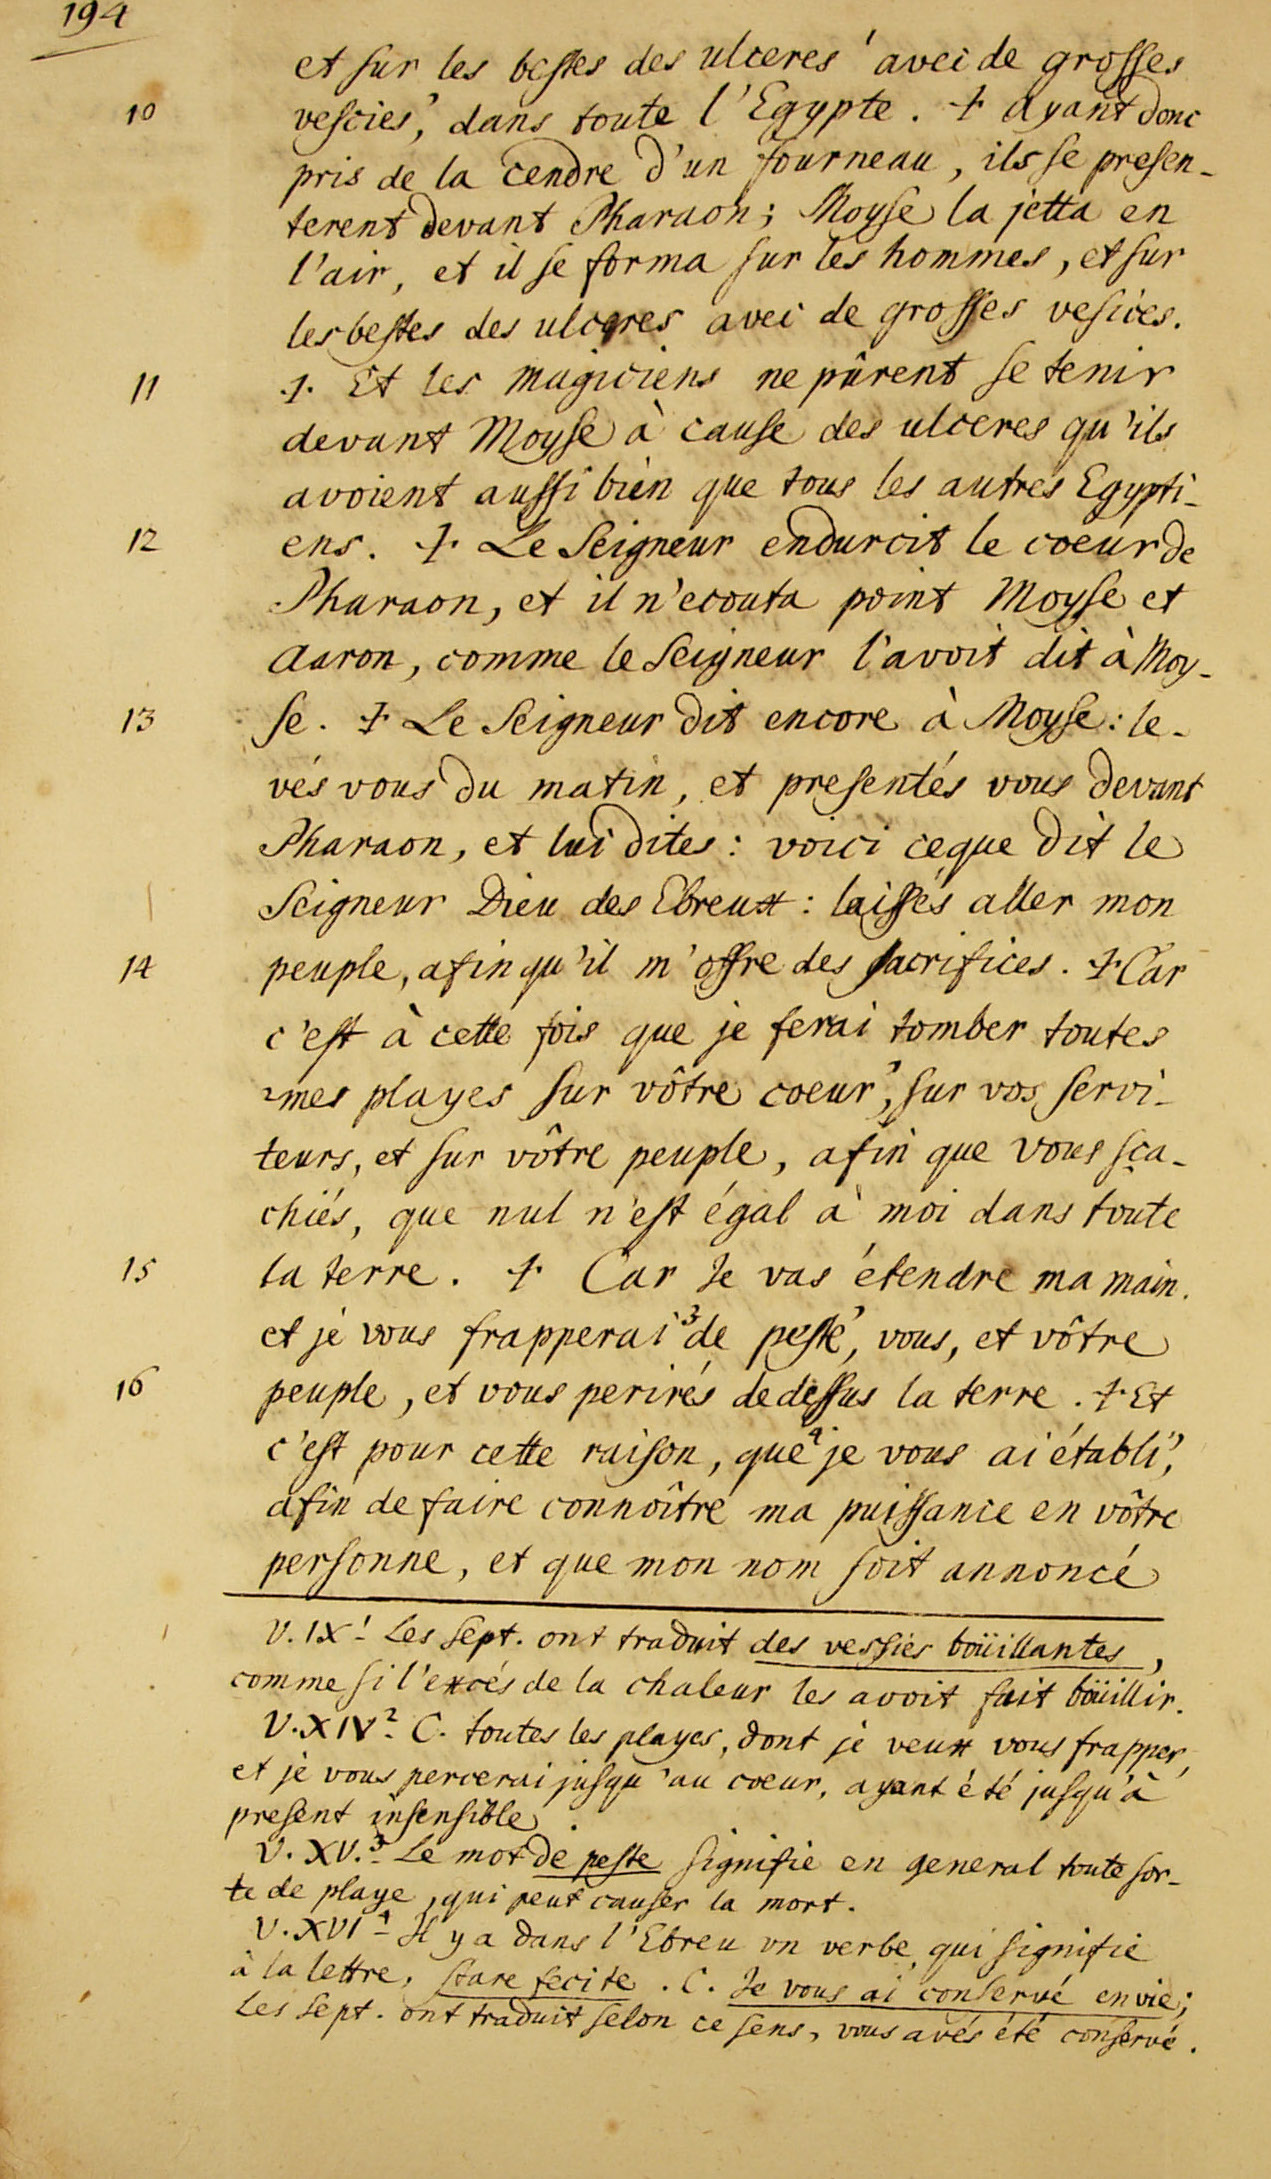 194
et sur les bestes des ulceres ¹ avec de grosses
10 vescies’, dans toute l'Egypte. + Ayant donc
pris de la cendre d'un fourneau, ils se presen-
terent devant Pharaon; Moyse la jetta en
l'air, et il se forma sur les hommes, et sur
les bestes des ulceres avec de grosses vesices.
11 + Et les magiciens ne pûrent se tenir
devant Moyse à cause des ulceres qu'ils
avoient aussi bien que tous les autres Egypti-
12 ens. + Le Seigneur endurcit le coeur de
Pharaon, et il n'ecouta point Moyse et
Aaron, comme le Seigneur l'avoit dit à Moy-
13 se. + Le Seigneur dit encore à Moyse: le-
vés vous du matin, et presentés vous devant
Pharaon, et lui dites: voici ce que dit le
Seigneur Dieu des Ebreux: laissés aller mon
14 peuple, afin qu'il m'offre des sacrifices. + Car
c'est à cette fois que je ferai tomber toutes
²mes playes sur vôtre coeur’, sur vos servi-
teurs, et sur vôtre peuple, afin que vous sça-
chiés, que nul n'est égal à moi dans toute
15 la terre. + Car Je vas étendre ma main.
et je vous frapperai ³de peste’, vous, et vôtre
16 peuple, et vous perirés de dessus la terre. + Et
c'est pour cette raison, que ⁴je vous ai établi’,
afin de faire connoître ma puissance en vôtre
personne, et que mon nom soit annoncé
V. IX¹. Les Sept. ont traduit des vessies boüillantes,
comme si l'excés de la chaleur les avoit fait boüillir.
V. XIV². C. toutes les playes, dont je veux vous frapper,
et je vous percerai jusqu'au coeur, ayant été jusqu'à
present insensible.
V. XV.³ Le mot de peste signifie en general toute sor-
te de playe, qui peut causer la mort.
V. XVI⁴. Il y a dans l'Ebreu un verbe, qui signifie
à la lettre, stare fecite. C. Je vous ai conservé en vie;
les Sept. ont traduit selon ce sens, vous avés été conservé.